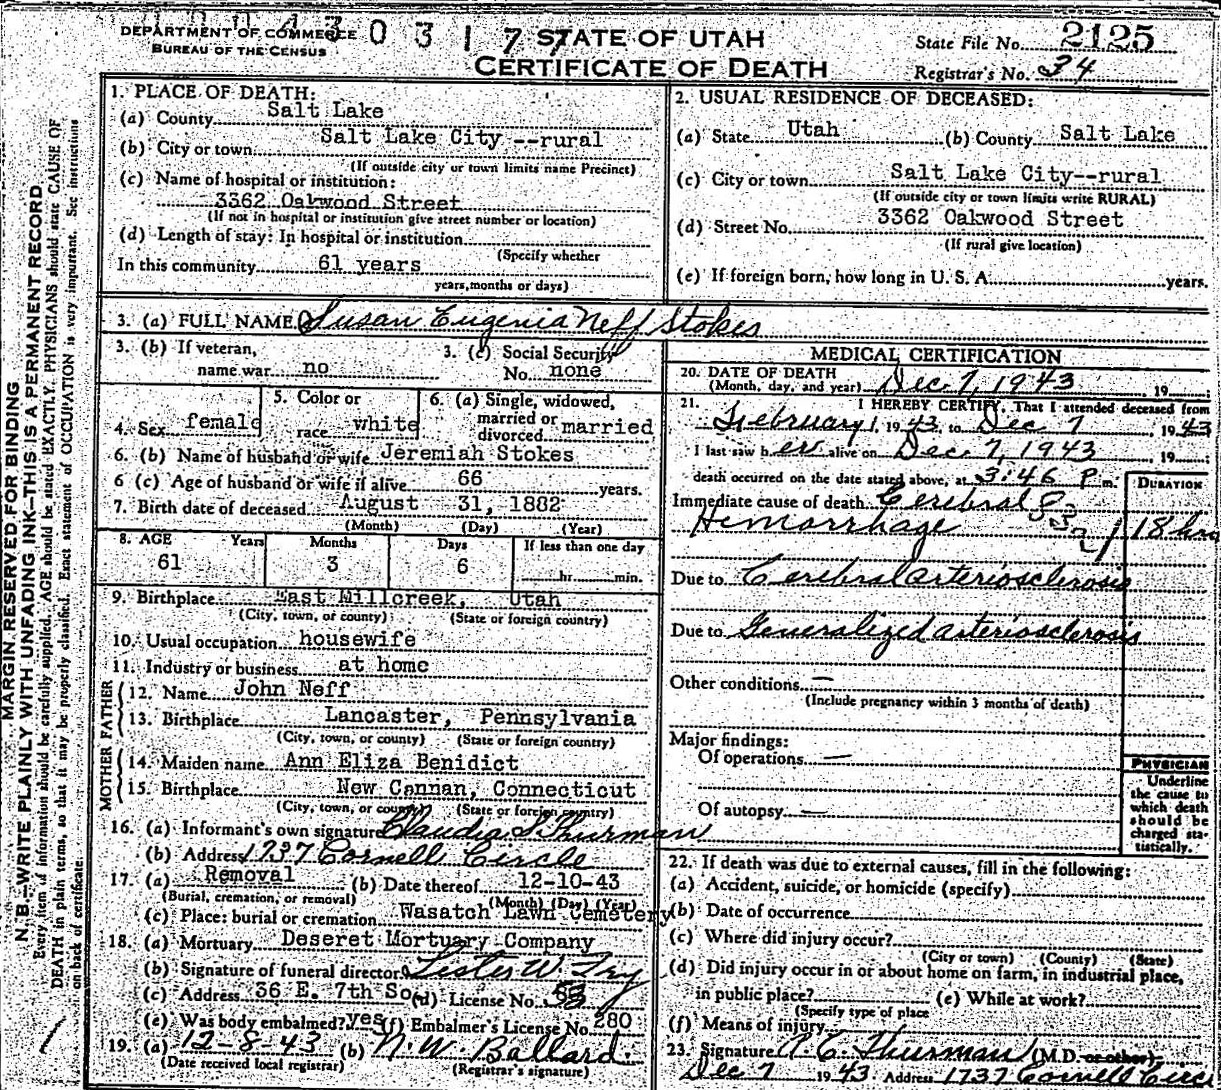 DEPARTMENT OF COMMERCE
BUREAU OF THE CENSUS
0 3 1 7 7
STATE OF UTAH
CERTIFICATE OF DEATH
State File No. 2125
Registrar's No. 34
MARGIN RESERVED FOR BINDING
N. B.—WRITE PLAINLY WITH UNFADING INK—THIS IS A PERMANENT RECORD
Every item of information should be carefully supplied. AGE should be stated EXACTLY. PHYSICIANS should state CAUSE OF
DEATH in plain terms, so that it may be properly classified. Exact statement of OCCUPATION is very important. See instructions
on back of certificate.
1. PLACE OF DEATH:
(a) County Salt Lake
(b) City or town Salt Lake City --rural
(If outside city or town limits name Precinct)
(c) Name of hospital or institution:
3362 Oakwood Street
(If not in hospital or institution give street number or location)
(d) Length of stay: In hospital or institution
(Specify whether
In this community 61 years
years, months or days)
2. USUAL RESIDENCE OF DECEASED:
(a) State Utah (b) County Salt Lake
(c) City or town Salt Lake City--rural
(If outside city or town limits write RURAL)
(d) Street No. 3362 Oakwood Street
(If rural give location)
(e) If foreign born, how long in U. S. A. years.
3. (a) FULL NAME Susan Eugenia Neff Stokes
3. (b) If veteran,
name war no
3. (c) Social Security
No. none
4. Sex female
5. Color or
race white
6. (a) Single, widowed,
married or
divorced married
6. (b) Name of husband or wife Jeremiah Stokes
6 (c) Age of husband or wife if alive 66 years.
7. Birth date of deceased August 31, 1882
(Month) (Day) (Year)
8. AGE Years Months Days If less than one day
61 3 6 hr. min.
9. Birthplace East Millcreek, Utah
(City, town, or county) (State or foreign country)
10. Usual occupation housewife
11. Industry or business at home
FATHER
12. Name John Neff
13. Birthplace Lancaster, Pennsylvania
(City, town, or county) (State or foreign country)
MOTHER
14. Maiden name Ann Eliza Benidict
15. Birthplace New Cannan, Connecticut
(City, town, or county) (State or foreign country)
16. (a) Informant's own signature Claudia S. Thurman
(b) Address 1737 Cornell Circle
17. (a) Removal (b) Date thereof 12-10-43
(Burial, cremation, or removal) (Month) (Day) (Year)
(c) Place: burial or cremation Wasatch Lawn Cemetery
18. (a) Mortuary Deseret Mortuary Company
(b) Signature of funeral director Lester W. Fry
(c) Address 36 E. 7th So. (d) License No. 53
(e) Was body embalmed? yes (f) Embalmer's License No. 280
19. (a) 12-8-43 (b) N. W. Ballard.
(Date received local registrar) (Registrar's signature)
MEDICAL CERTIFICATION
20. DATE OF DEATH
(Month, day, and year) Dec 7, 1943 19
21. I HEREBY CERTIFY, That I attended deceased from
February 1, 1943, to Dec 7 1943
I last saw her alive on Dec. 7, 1943 19
death occurred on the date stated above, at 3:46 P m.
DURATION
Immediate cause of death Cerebral
Hemorrhage 18 hrs
Due to Cerebral arteriosclerosis
Due to Generalized arteriosclerosis
Other conditions —
(Include pregnancy within 3 months of death)
Major findings:
Of operations —
Of autopsy —
PHYSICIAN
Underline
the cause to
which death
should be
charged sta-
tistically.
22. If death was due to external causes, fill in the following:
(a) Accident, suicide, or homicide (specify)
(b) Date of occurrence
(c) Where did injury occur?
(City or town) (County) (State)
(d) Did injury occur in or about home on farm, in industrial place,
in public place? (e) While at work?
(Specify type of place
(f) Means of injury
23. Signature A. C. Thurman (M.D. or other)
Dec 7 1943 Address 1737 Cornell Circ